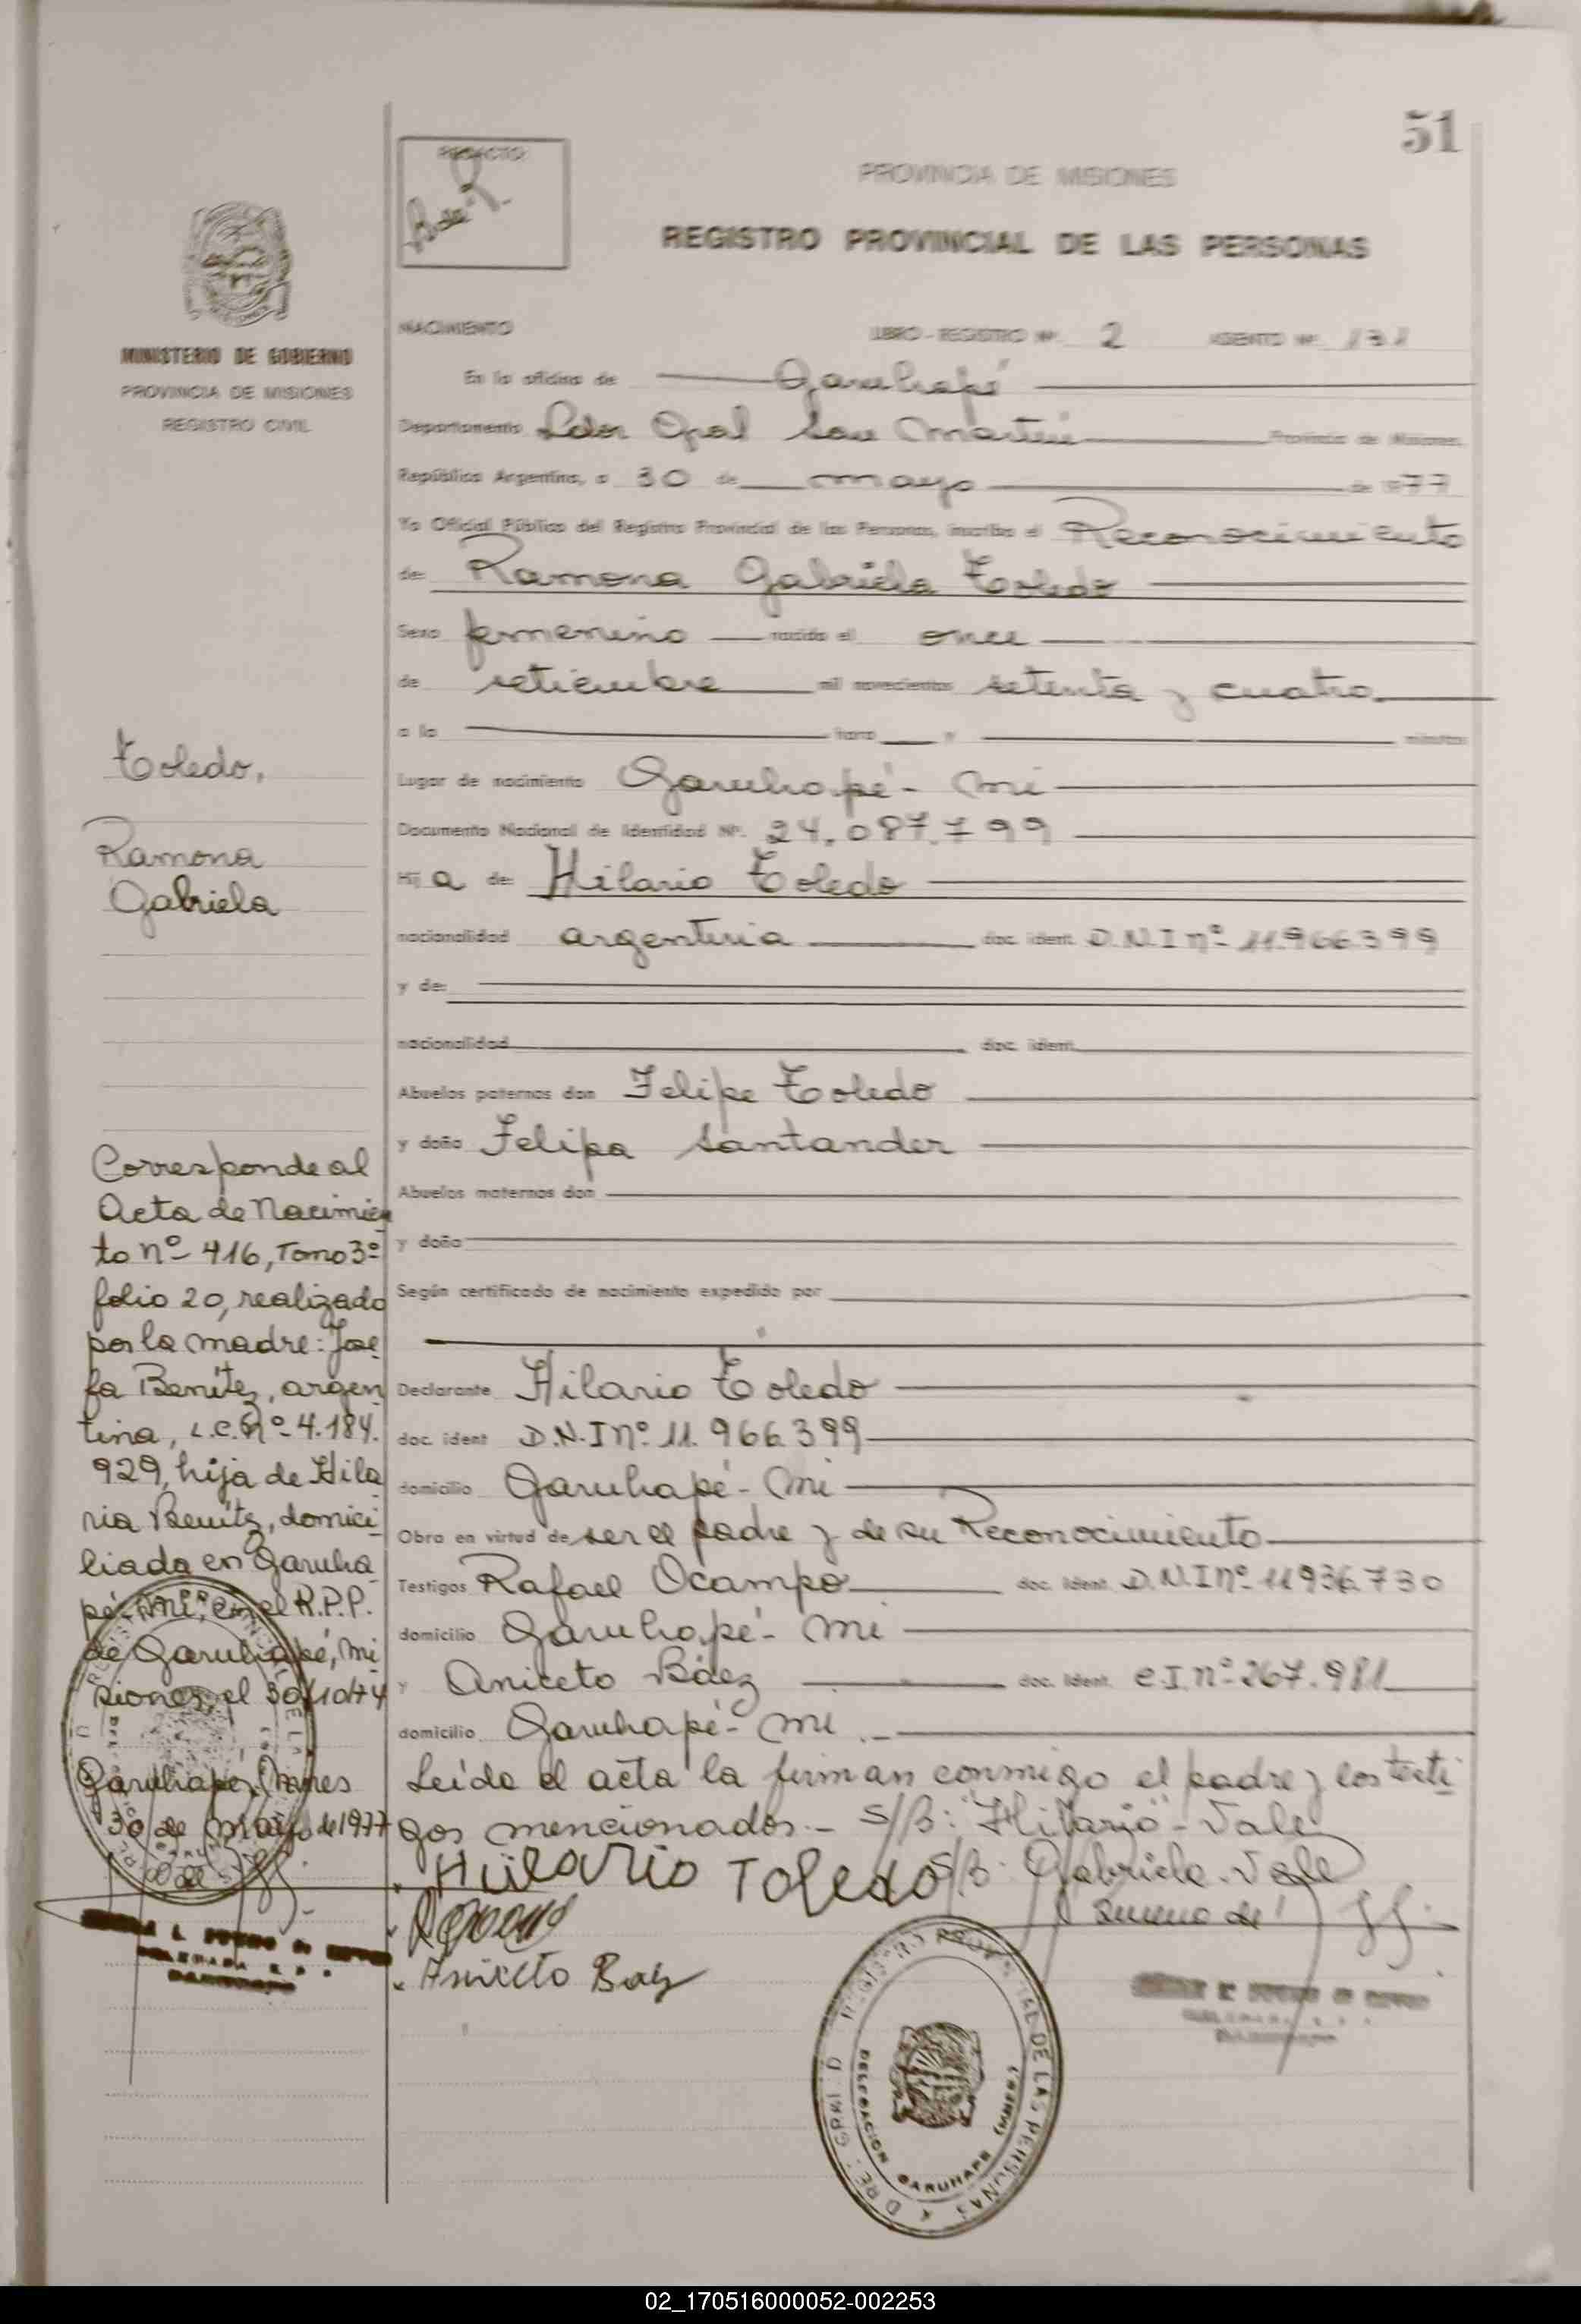 51
REDACTO:
PROVINCIA DE MISIONES
REGISTRO PROVINCIAL DE LAS PERSONAS
MINISTERIO DE GOBIERNO
PROVINCIA DE MISIONES
REGISTRO CIVIL
NACIMIENTO LIBRO - REGISTRO Nº 2 ASIENTO Nº 131
En la oficina de Garuhapé
Departamento Ldor Gral San Martín Provincia de Misiones,
República Argentina, a 30 de mayo de 1977
Yo Oficial Público del Registro Provincial de las Personas, inscribo el Reconocimiento
de: Ramona Gabriela Toledo
Sexo femenino nacido el once
de setiembre mil novecientos setenta y cuatro
a la hora y minutos
Lugar de nacimiento Garuhapé - Mi
Documento Nacional de Identidad Nº. 24.087.799
Hij a de: Hilario Toledo
nacionalidad argentina doc. ident. D.N.I nº 11.966.399
y de:
nacionalidad doc. ident.
Abuelos paternos don Felipe Toledo
y doña Felipa Santander
Abuelos maternos don
y doña
Según certificado de nacimiento expedido por
Declarante Hilario Toledo
doc. ident D.N.I nº 11.966.399
domicilio Garuhapé - Mi
Obra en virtud de ser el padre y de su Reconocimiento
Testigos Rafael Ocampo doc. ident. D.N.I nº 11936.730
domicilio Garuhapé - Mi
y Aniceto Báez doc. ident. C.I. nº 267.981
domicilio Garuhapé - Mi
Leída el acta la firman conmigo el padre y los testi
gos mencionados.- S/B: "Hilario" - Vale
S/B: Gabriela. Vale
Hilario Toledo
Aniceto Baez
Toledo,
Ramona
Gabriela
Corresponde al
Acta de Nacimien
to nº 416, Tomo 3º
folio 20, realizado
por la madre: Jose
fa Benítez, argen
tina, L.C. Nº 4.184.
929, hija de Hila
ria Benítez, domici
liada en Garuha
pé - Mi, en el R.P.P.
de Garuhapé, Mi
siones, el 30/10/74
Garuhapé, Mnes
30 de mayo de 1977
REGISTRO PROVINCIAL DE LAS PERSONAS
DELEGACION GARUHAPE (MNES.)
02_170516000052-002253